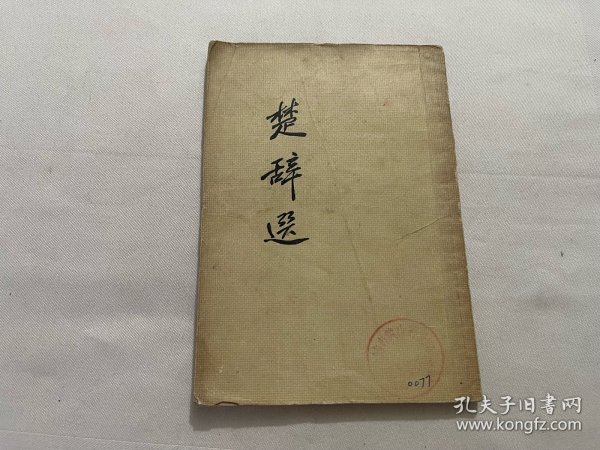 楚辞選
0077
孔夫子旧書网
www.kongfz.com